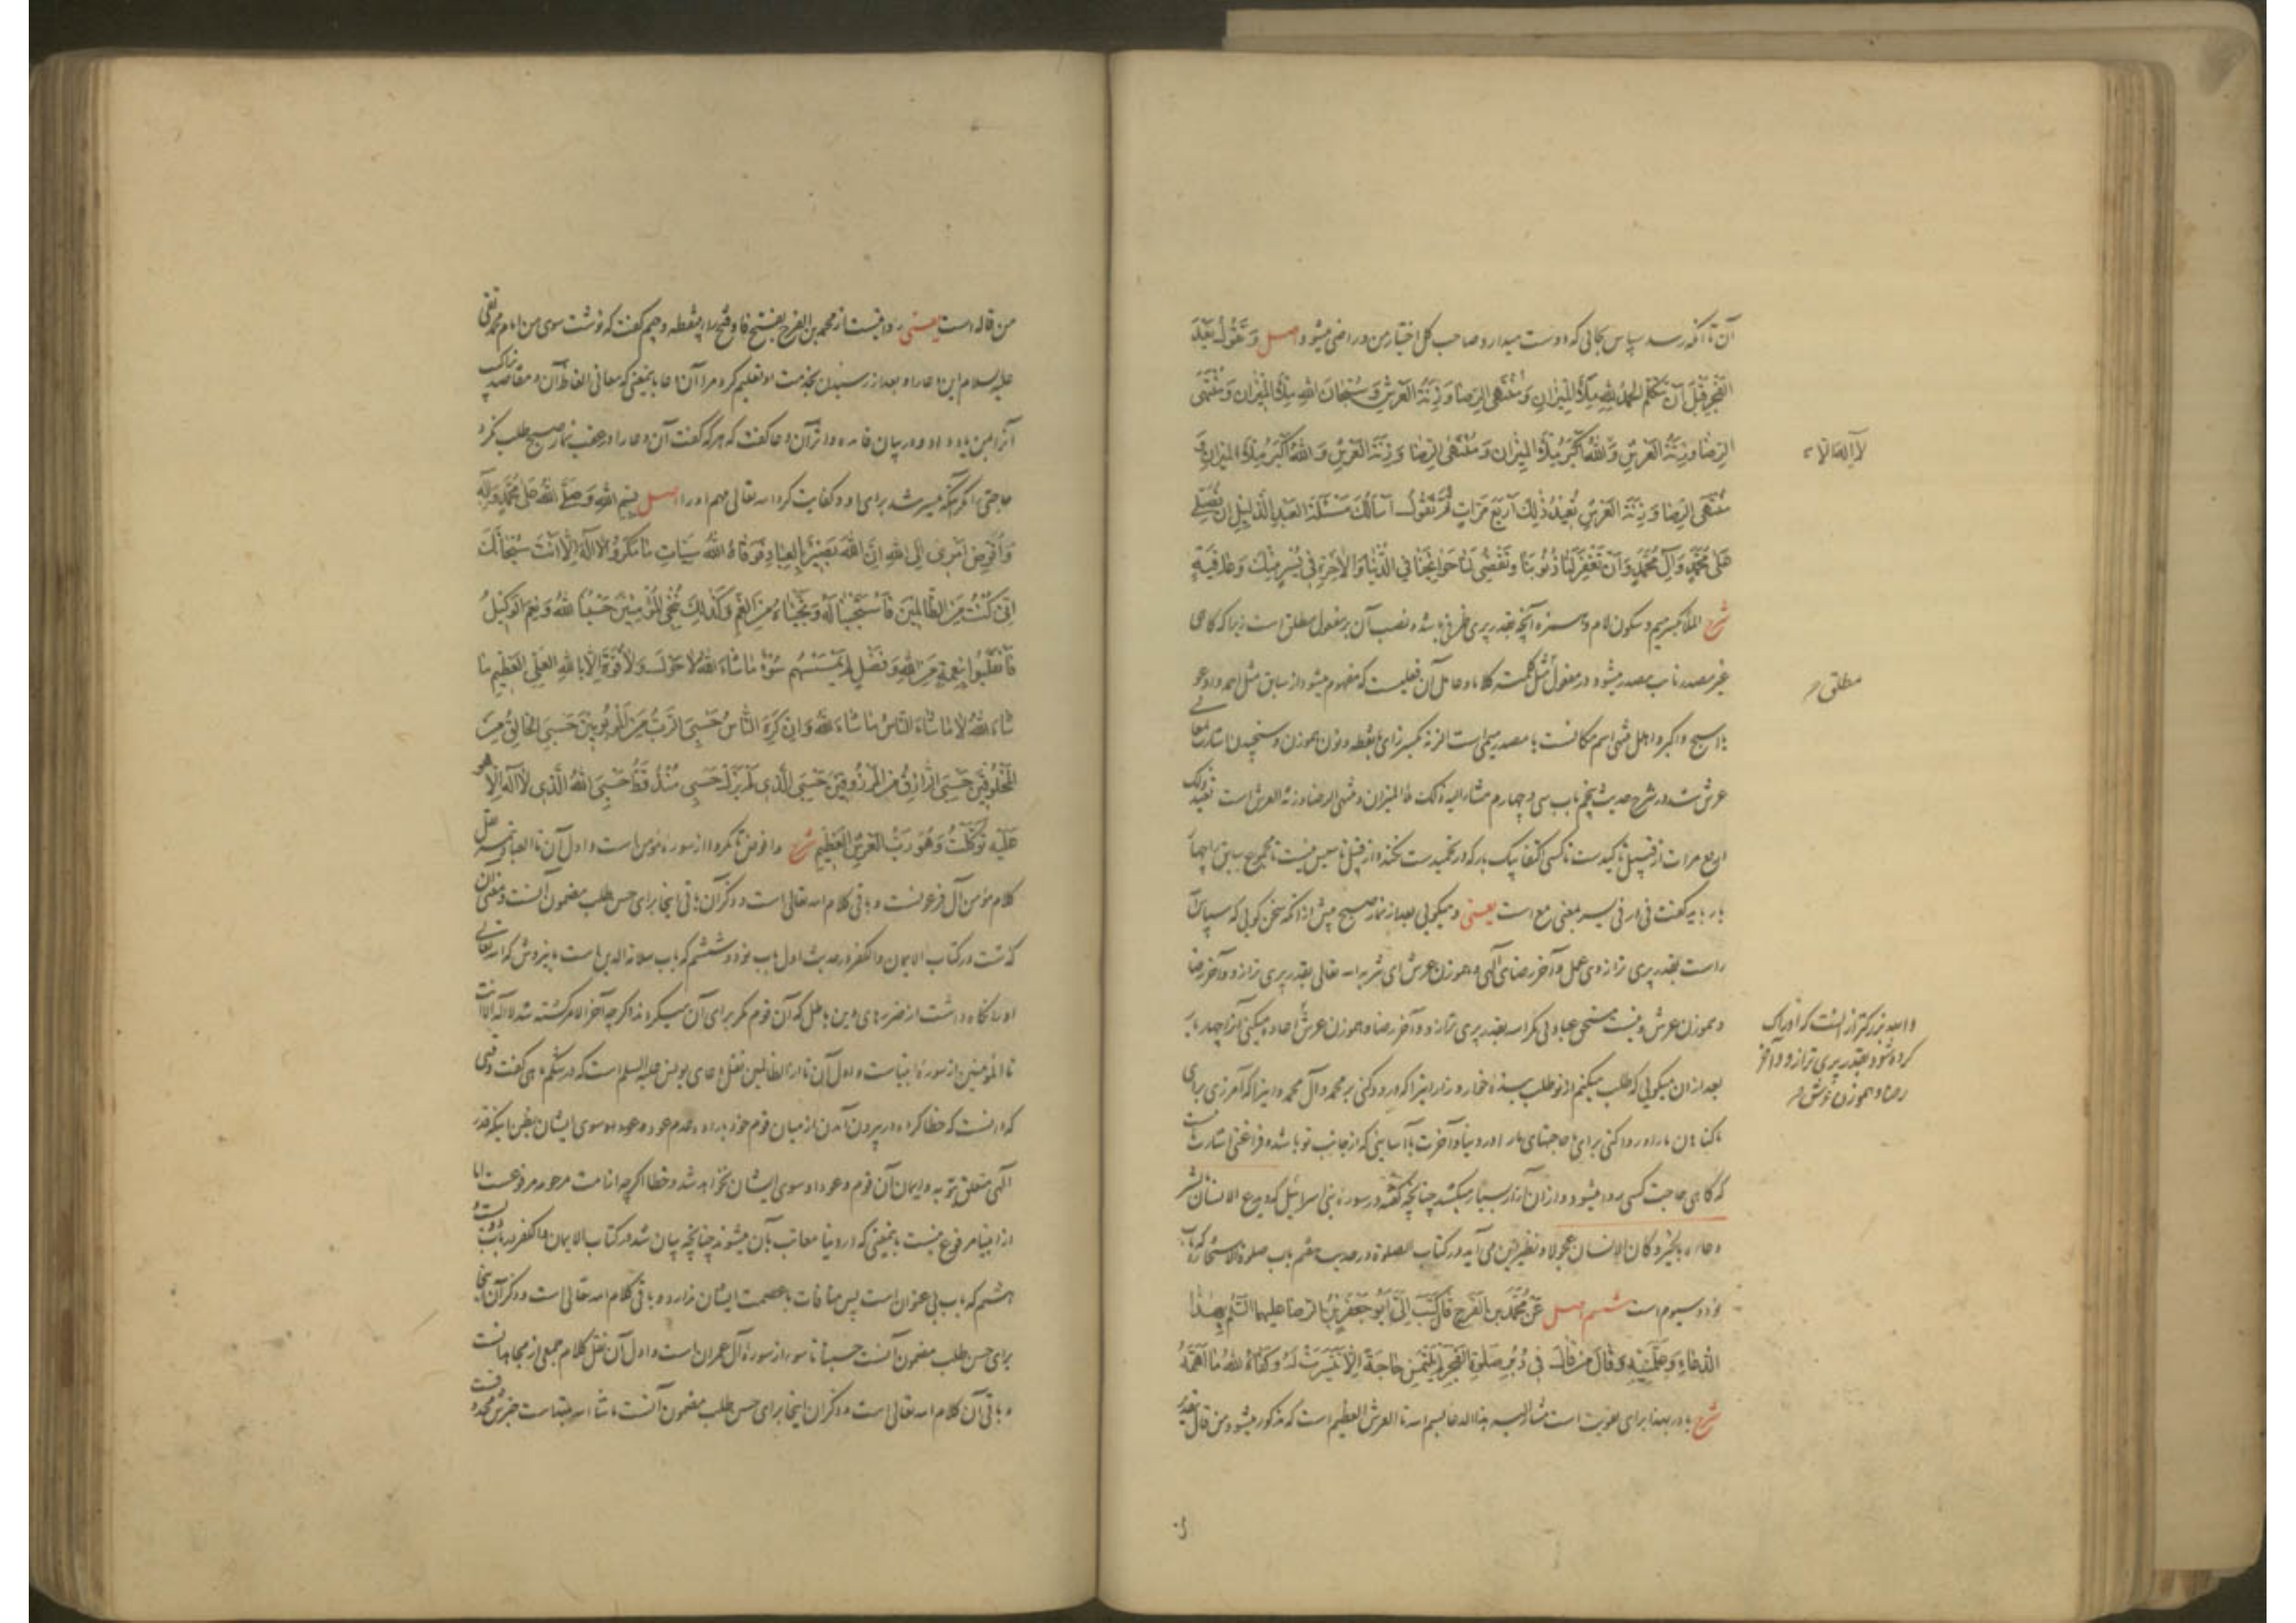 آن تا آنکه رسد سپاس بجائی که دوست میدارد صاحب کل اختیار من و راضی میشود اصل وَتَقُولُ بَعْدَ
الْفَجْرِ قَبْلَ اَنْ تَتَكَلَّمَ الْحَمْدُ لِلّٰهِ مِلْأَ الْمِيْزَانِ وَمُنْتَهَى الرِّضَا وَزِنَةَ الْعَرْشِ وَسُبْحَانَ اللهِ مِلْأَ الْمِيْزَانِ وَمُنْتَهَى
الرِّضَا وَزِنَةَ الْعَرْشِ وَاللهُ اَكْبَرُ مِلْأَ الْمِيْزَانِ وَمُنْتَهَى الرِّضَا وَزِنَةَ الْعَرْشِ وَاللهُ اَكْبَرُ مِلْأَ الْمِيْزَانِ وَ
لا اله الا الله
مُنْتَهَى الرِّضَا وَزِنَةَ الْعَرْشِ تُعِيْدُ ذٰلِكَ اَرْبَعَ مَرَّاتٍ ثُمَّ تَقُولُ اَسْأَلُكَ مَسْئَلَةَ الْعَبْدِ الذَّلِيْلِ اَنْ تُصَلِّىَ
عَلٰى مُحَمَّدٍ وَآلِ مُحَمَّدٍ وَاَنْ تَغْفِرَ لَنَا ذُنُوبَنَا وَتَقْضِىَ لَنَا حَوَائِجَنَا فِى الدُّنْيَا وَالْآخِرَةِ فِى يُسْرٍ مِنْكَ وَعَافِيَةٍ
شرح الملأ بکسر میم و سکون لام و همزه آنچه بقدر پری ظرفی باشد و نصب آن بر مفعول مطلق است زیرا که گاهی
غیر مصدر نایب مصدر میشود در مفعول مثل کلمته کلاما و عامل آن فعلیست که مفهوم میشود از سابق مثل احمد و ادعو
مطلق
یا اسبح و اکبر و اهل منتهی اسم مکانست یا مصدر میمی است الزنة بکسر زای بانقطه و نون هموزن و سنجیدن اشارت
عرش شد در شرح حدیث پنجم باب سی و چهارم مشار الیه ذلک ملأ المیزان و منتهی الرضا و زنة العرش است تعید ذلک
اربع مرات از قبیل تاکیدست تا کسی اکتفا بیک بار که در تحمیدست نکند و از قبیل تاسیس نیست تا مجموع سابق را چهار
بار باید گفت فی در فی یسر بمعنی مع است یعنی و میگوئی بعد از نماز صبح پیش از آنکه سخن گوئی که سپاس
راست بقدر پری ترازوی عمل و آخر رضای الهی و هموزن عرش ای تنزیه الله تعالی بقدر پری ترازو و آخر رضا
و هموزن عرش و نیست مستحق عبادتی مگر الله بقدر پری ترازو و آخر رضا و هموزن عرش اعاده میکنی آنرا چهار بار
والله بزرگتر از آنست که ادراک
کرده شود بقدر پری ترازو و آخر
رضا و هموزن عرش
بعد از آن میگوئی که طلب میکنم از تو طلب بنده خوار و زار اینرا که درود کنی بر محمد و آل محمد و اینرا که آمرزی برای
ما گناهان ما را و روا کنی برای ما حاجتهای ما را در دنیا و آخرت با آسایشی که از جانب تو باشد و فراغتی اشارتست
که گاهی حاجت کسی روا میشود و از آن آزار بسیار میکشد چنانچه گفته در سوره بنی اسرائیل که ویدع الانسان بالشر
دعاءه بالخیر و کان الانسان عجولا و نظیر این می آید در کتاب الصلوة در حدیث هفتم باب صلوة الاستخاره که باب
نود و سیوم است ششم اصل عَنْ مُحَمَّدِ بْنِ الْفَرَجِ قَالَ كَتَبَ اِلَىَّ اَبُو جَعْفَرِ بْنُ الرِّضَا عليهما السَّلَم بِهٰذَا
الدُّعَاءِ وَعَلَّمَنِيْهِ وَقَالَ مَنْ قَالَ فِى دُبُرِ صَلٰوةِ الْفَجْرِ لَمْ يَلْتَمِسْ حَاجَةً اِلَّا تَيَسَّرَتْ لَهُ وَكَفَاهُ اللهُ مَا اَهَمَّهُ
شرح با در بهذا برای تقویت است مشار الیه هذا الدعا بسم الله تا العرش العظیم است که مذکور میشود و من قال بتقدیر
من قاله است یعنی روایتست از محمد بن الفرج بفتح فا و فتح راء بینقطه و جیم گفت که نوشت سوی من امام محمد تقی
علیه السلام این دعا را و بعد از رسیدن بخدمت او تعلیم کرد مرا آن دعا باینمعنی که معانی الفاظ آن و مقاصد نازک
آنرا بمن یاد داد و در بیان فایده خواندن آن دعا گفت که هر که گفت آن دعا را در عقب نماز صبح طلب نکرد
حاجتی را مگر آنکه میسر شد برای او و کفایت کرد الله تعالی مهم او را اصل بِسْمِ اللهِ وَصَلَّى اللهُ عَلٰى مُحَمَّدٍ وَآلِهِ
وَاُفَوِّضُ اَمْرِى اِلَى اللهِ اِنَّ اللهَ بَصِيْرٌ بِالْعِبَادِ فَوَقَاهُ اللهُ سَيِّئَاتِ مَا مَكَرُوا لَا اِلٰهَ اِلَّا اَنْتَ سُبْحَانَكَ
اِنِّى كُنْتُ مِنَ الظَّالِمِيْنَ فَاسْتَجَبْنَا لَهُ وَنَجَّيْنَاهُ مِنَ الْغَمِّ وَكَذٰلِكَ نُنْجِى الْمُؤْمِنِيْنَ حَسْبُنَا اللهُ وَنِعْمَ الْوَكِيْلُ
فَانْقَلَبُوا بِنِعْمَةٍ مِنَ اللهِ وَفَضْلٍ لَمْ يَمْسَسْهُمْ سُوْءٌ مَا شَاءَ اللهُ لَا حَوْلَ وَلَا قُوَّةَ اِلَّا بِاللهِ الْعَلِىِّ الْعَظِيْمِ مَا
شَاءَ اللهُ لَا مَا شَاءَ النَّاسُ مَا شَاءَ اللهُ وَاِنْ كَرِهَ النَّاسُ حَسْبِىَ الرَّبُّ مِنَ الْمَرْبُوبِيْنَ حَسْبِىَ الْخَالِقُ مِنَ
الْمَخْلُوقِيْنَ حَسْبِىَ الرَّازِقُ مِنَ الْمَرْزُوقِيْنَ حَسْبِىَ الَّذِى لَمْ يَزَلْ حَسْبِى مُنْذُ قَطُّ حَسْبِىَ اللهُ الَّذِى لَا اِلٰهَ اِلَّا هُوَ
عَلَيْهِ تَوَكَّلْتُ وَهُوَ رَبُّ الْعَرْشِ الْعَظِيْمِ شرح و افوض تا مکروا از سوره مومن است و اول آن تا العباد نقل
کلام مؤمن آل فرعونست و باقی کلام الله تعالی است و ذکر آن باقی اینجا برای حسن طلب مضمون آنست و معنی آن
گذشت در کتاب الایمان والکفر در حدیث اول باب نود و ششم که باب سلامة الدین است باین روش که الله تعالی
او را نگاه داشت از ضررهای دین باطل که آن قوم مکر برای آن میکردند اگرچه آخر الامر کشته شد لا اله الا انت
تا المؤمنین از سوره انبیاست و اول آن تا الظالمین نقل دعای یونس علیه السلم است که در شکم ماهی گفت وقتی
که دانست که خطا کرده در بیرون آمدن از میان قوم خود باراده عدم عود و سوی ایشان بظن اینکه قدر
الهی متعلق بتوبه و ایمان آن قوم و عود او سوی ایشان نخواهد شد و خطا اگرچه از امت مرحومه مرفوعست اما
از انبیا مرفوع نیست باینمعنی که در دنیا معاتب بآن میشوند چنانچه بیان شد در کتاب الایمان والکفر در باب دویست و
هشتم که باب بی عنوان است پس منافات با عصمت ایشان ندارد و باقی کلام الله تعالی است و ذکر آن اینجا
برای حسن طلب مضمون آنست حسبنا تا سوء از سوره آل عمران است و اول آن نقل کلام جمعی از مجاهدانست
و باقی آن کلام الله تعالی است و ذکر آن اینجا برای حسن طلب مضمون آنست ما شاء الله مبتداست خبرش محذوفست